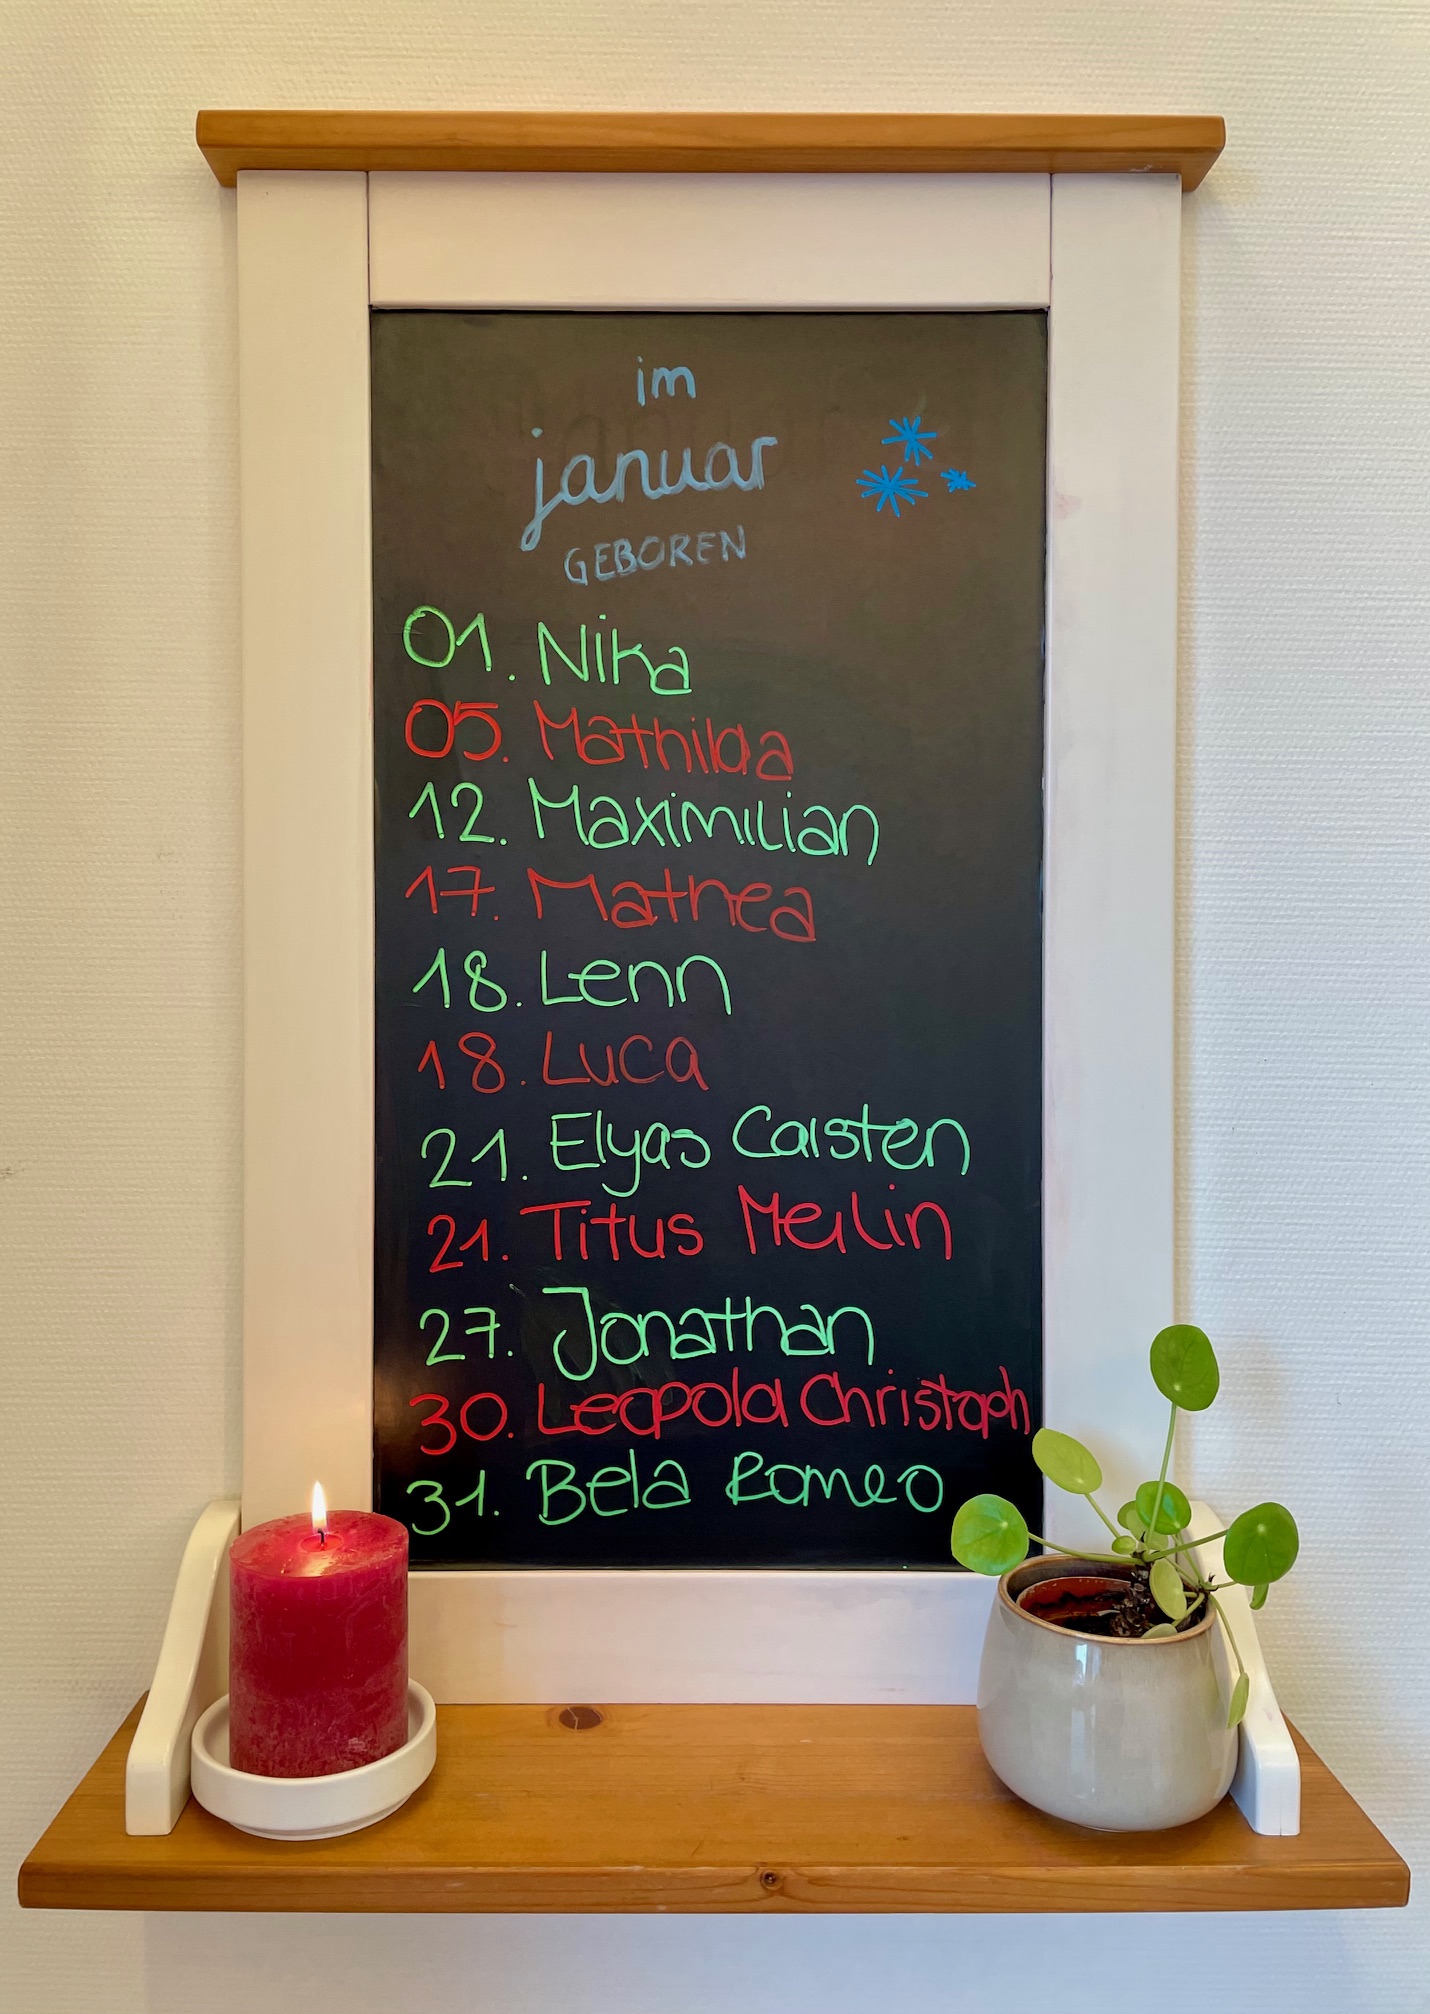 im
januar
GEBOREN
01. Nika
05. Mathilda
12. Maximilian
17. Mathea
18. Lenn
18. Luca
21. Elyas Carsten
21. Titus Merlin
27. Jonathan
30. Leopold Christoph
31. Bela Romeo